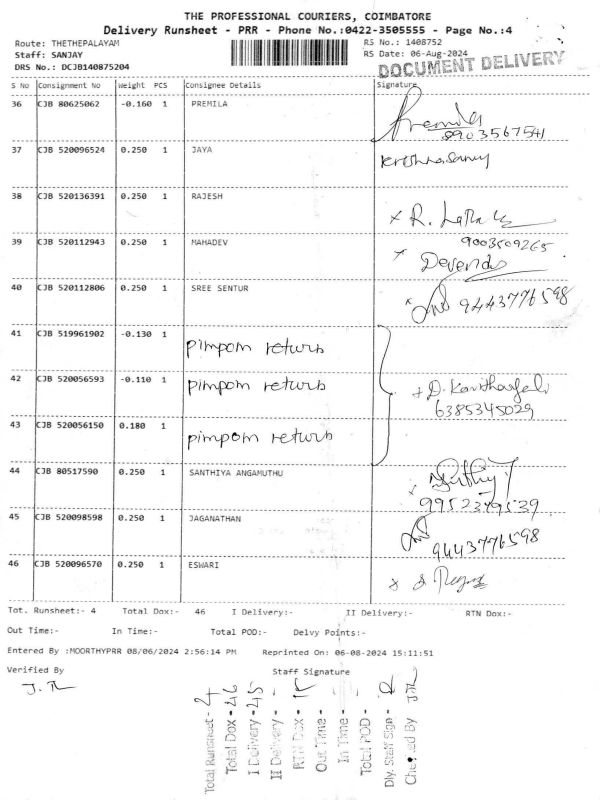 THE PROFESSIONAL COURIERS, COIMBATORE
Delivery Runsheet - PRR - Phone No.:0422-3505555 - Page No.:4
Route: THETHEPALAYAM RS No.: 1408752
Staff: SANJAY RS Date: 06-Aug-2024
DRS No.: DCJB140875204 DOCUMENT DELIVERY
S No Consignment No Weight PCS Consignee Details Signature
36 CJB 80625062 -0.160 1 PREMILA Premila
8903567541
37 CJB 520096524 0.250 1 JAYA
38 CJB 520136391 0.250 1 RAJESH
x R. Latha
39 CJB 520112943 0.250 1 MAHADEV 9003509265
x
40 CJB 520112806 0.250 1 SREE SENTUR
x 9443776598
41 CJB 519961902 -0.130 1 pimpom return
42 CJB 520056593 -0.110 1 pimpom return
6385345029
43 CJB 520056150 0.180 1 pimpom return
44 CJB 80517590 0.250 1 SANTHIYA ANGAMUTHU
9952379539
45 CJB 520098598 0.250 1 JAGANATHAN
9443776598
46 CJB 520096570 0.250 1 ESWARI
Tot. Runsheet:- 4 Total Dox:- 46 I Delivery:- II Delivery:- RTN Dox:-
Out Time:- In Time:- Total POD:- Delvy Points:-
Entered By :MOORTHYPRR 08/06/2024 2:56:14 PM Reprinted On: 06-08-2024 15:11:51
Verified By Staff Signature
Total Runsheet - 4
Total Dox - 46
I Delivery - 45
II Delivery -
RTN Dox -
Out Time -
In Time -
Total POD -
Dly. Staff Sign -
Checked By